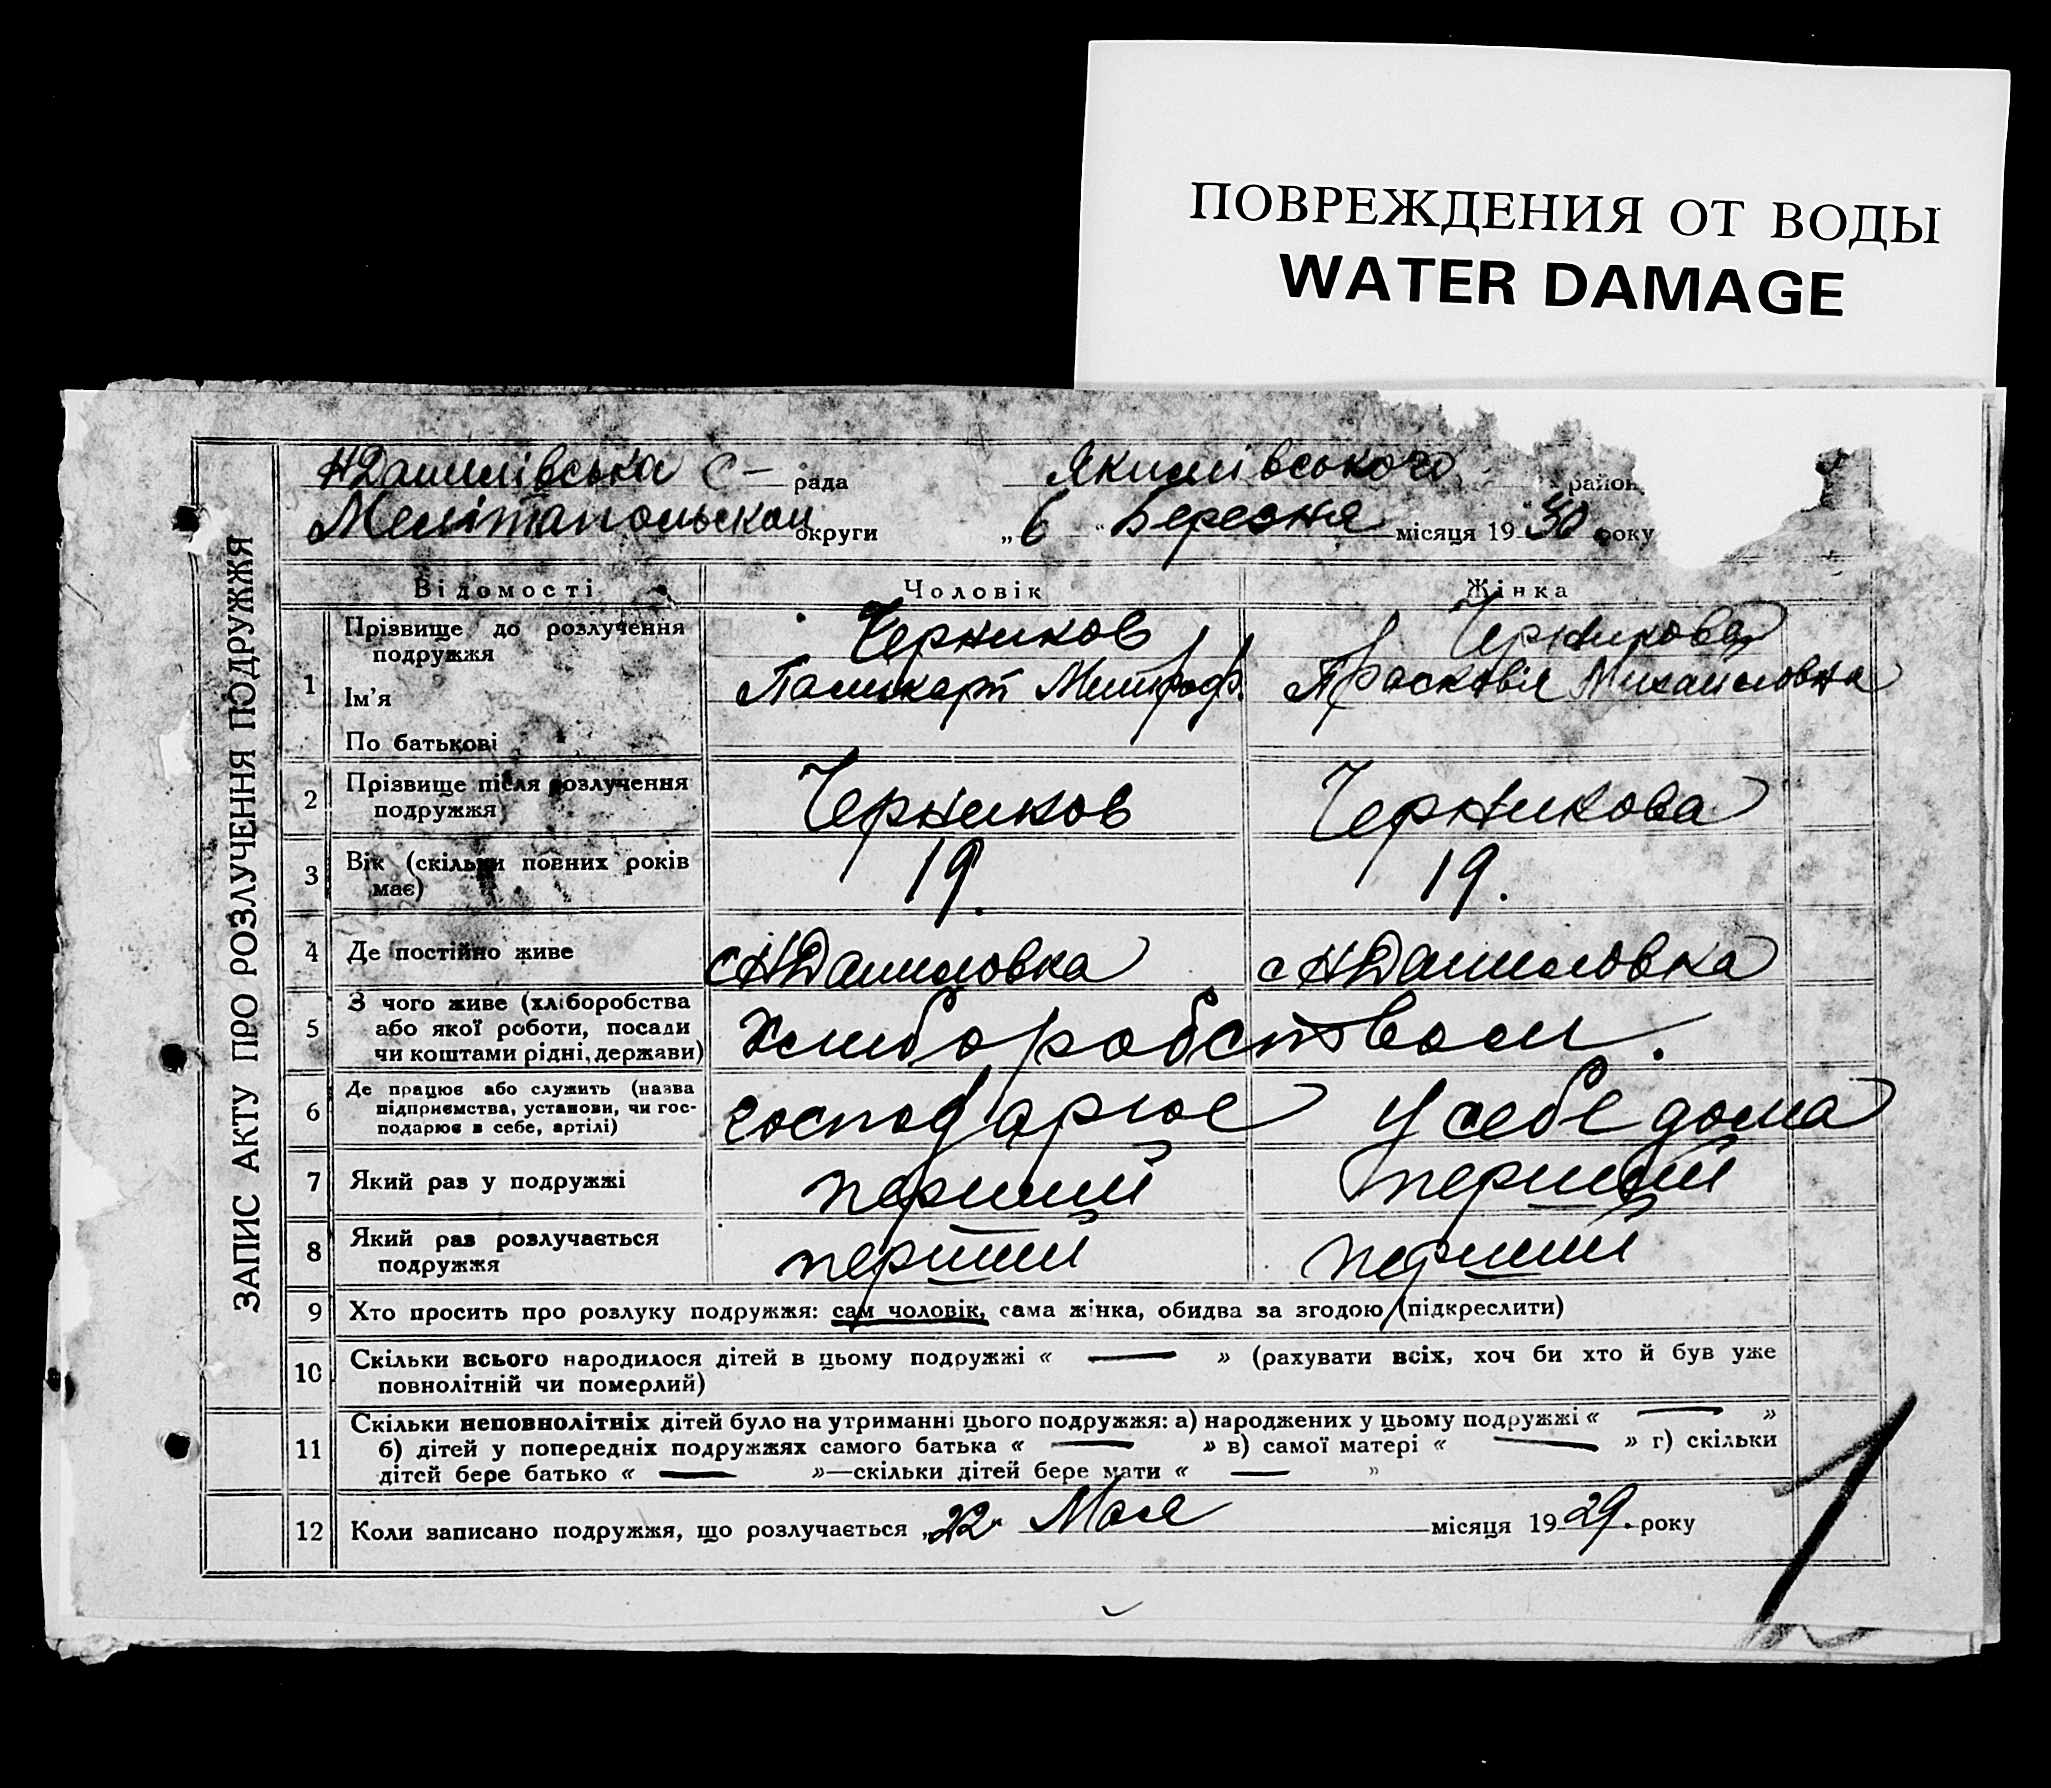 ПОВРЕЖДЕНИЯ ОТ ВОДЫ
WATER DAMAGE
ЗАПИС АКТУ ПРО РОЗЛУЧЕННЯ ПОДРУЖЖЯ
НДанилівська с– рада Якимівського район
Мелітапольскои округи „6“ Березня місяця 1930 року
Відомості Чоловік Жінка
1 Прізвище до розлучення подружжя Черников Черникова
Ім'я Митроф. Прасковія Михайловна
По батькові
2 Прізвище після розлучення подружжя Черников Черникова
3 Вік (скільки повних років має) 19. 19.
4 Де постійно живе с НДаниловка с НДаниловка
5 З чого живе (хліборобства або якої роботи, посади чи коштами рідні, держави) Хлиборобством.
6 Де працює або служить (назва підприємства, установи, чи господарює в себе, артілі) господарює у себе дома
7 Який раз у подружжі перший перший
8 Який раз розлучається подружжя перший перший
9 Хто просить про розлуку подружжя: сам чоловік, сама жінка, обидва за згодою (підкреслити)
10 Скільки всього народилося дітей в цьому подружжі « — » (рахувати всіх, хоч би хто й був уже
повнолітній чи померлий)
11 Скільки неповнолітніх дітей було на утриманні цього подружжя: а) народжених у цьому подружжі « — »
б) дітей у попередніх подружжях самого батька « — » в) самої матері « — » г) скільки
дітей бере батько « — »—скільки дітей бере мати « — »
12 Коли записано подружжя, що розлучається „22“ Мая місяця 1929. року